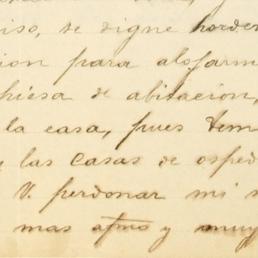 iso, se digne horden
cion para alofarm
chiesa de abitacion,
la casa, pues tem
y las casas de osped
V. perdonar mi
mas afmo y muy